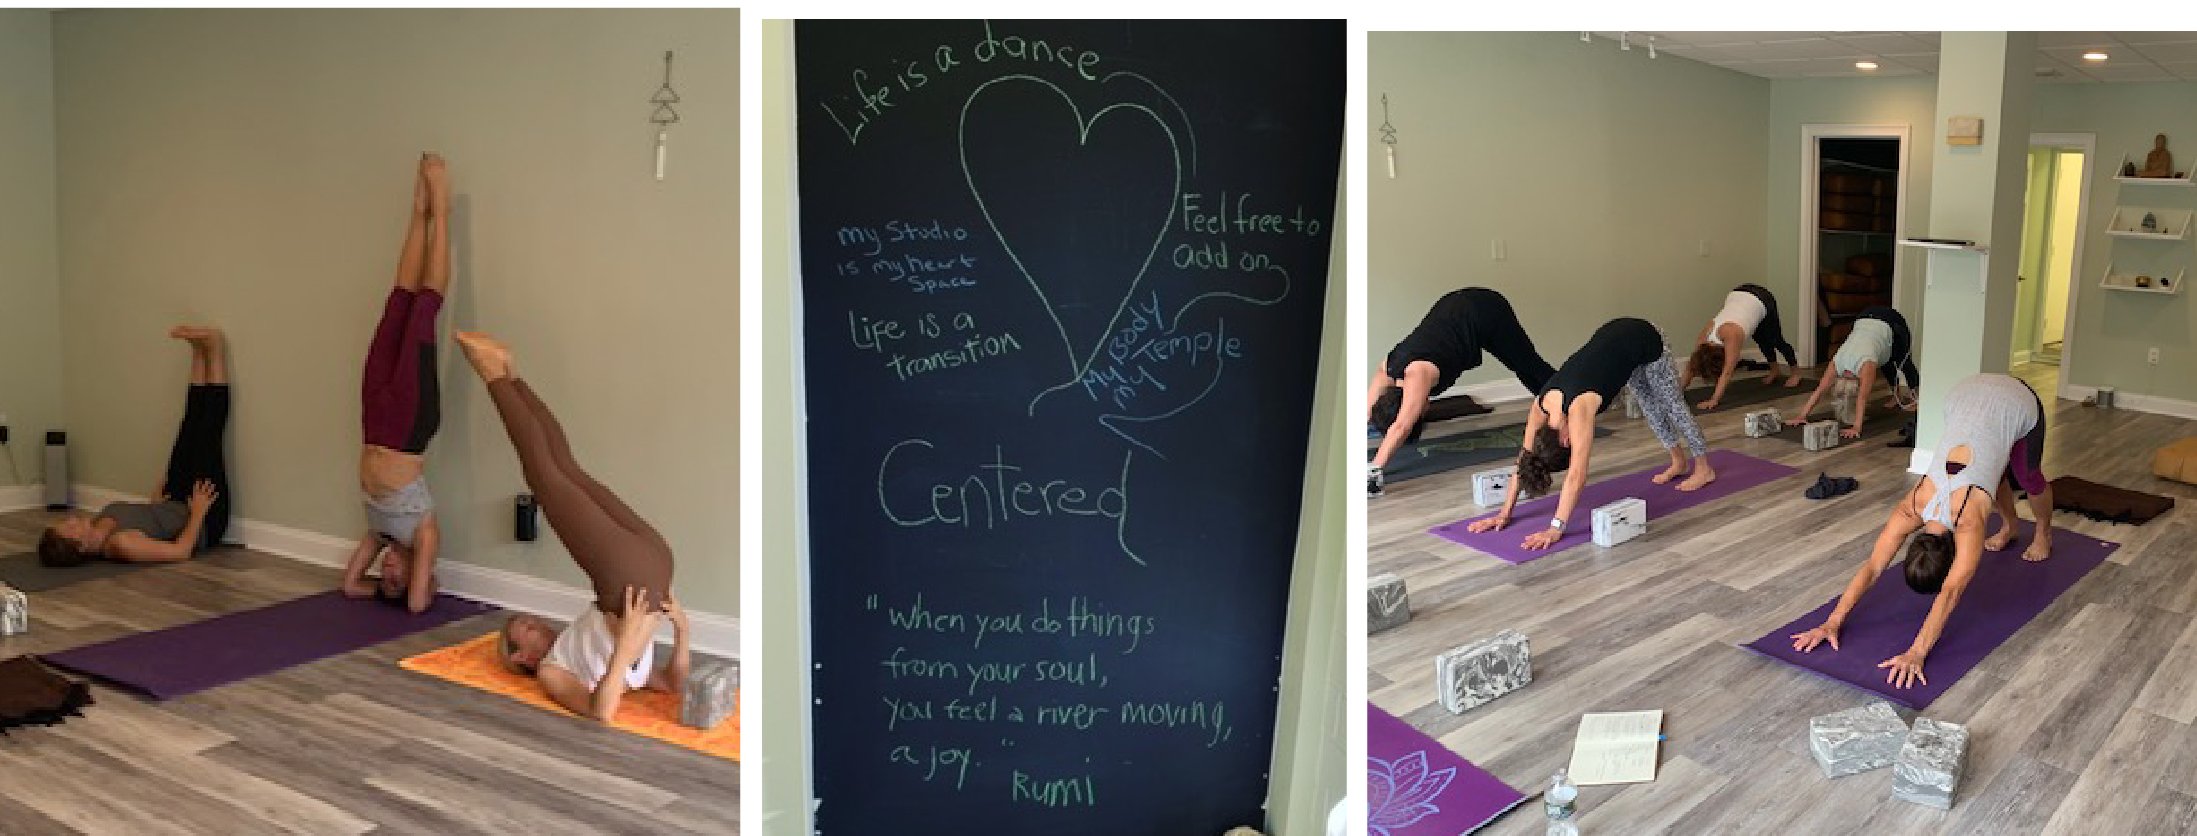 Life is a dance
my Studio
is my heart
Space
Feel free to
add on
Life is a
transition
My Body
my Temple
Centered
"when you do things
from your soul,
you feel a river moving,
a joy."
Rumi